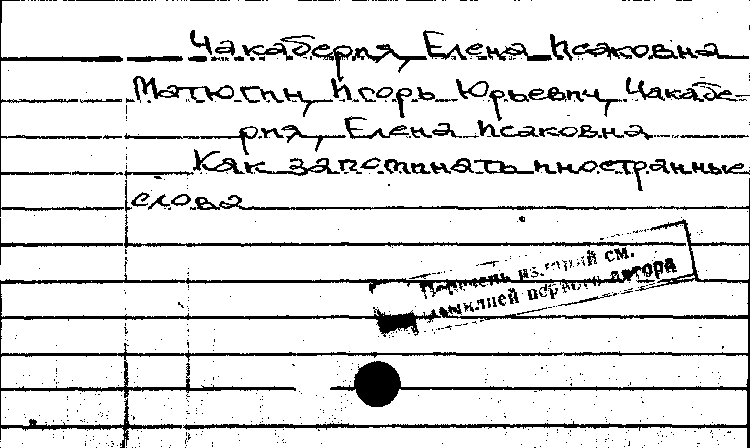 Чакаберия, Елена Исаковна
Матюгин, Игорь Юрьевич, Чакабе-
рия, Елена Исаковна
Как запоминать иностранные
слова
Перечень изданий см.
фамилией первого автора